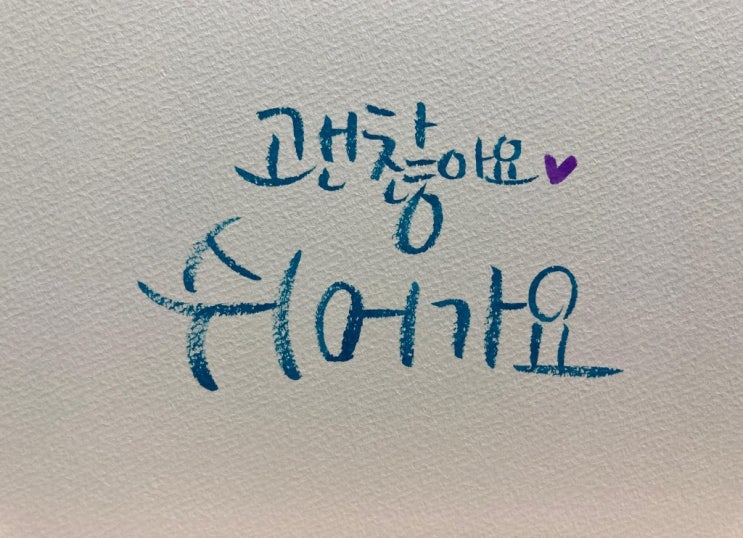 괜찮아요
쉬어가요